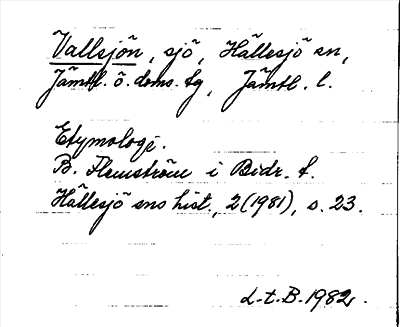 Vallsjön, sjö, Hällesjö sn,
Jämtl. ö. doms. tg, Jämtl. l.
Etymologi.
B. Flemström i Bidr. t.
Hällesjö sns hist, 2(1981), s. 23.
L.t.B. 1982.